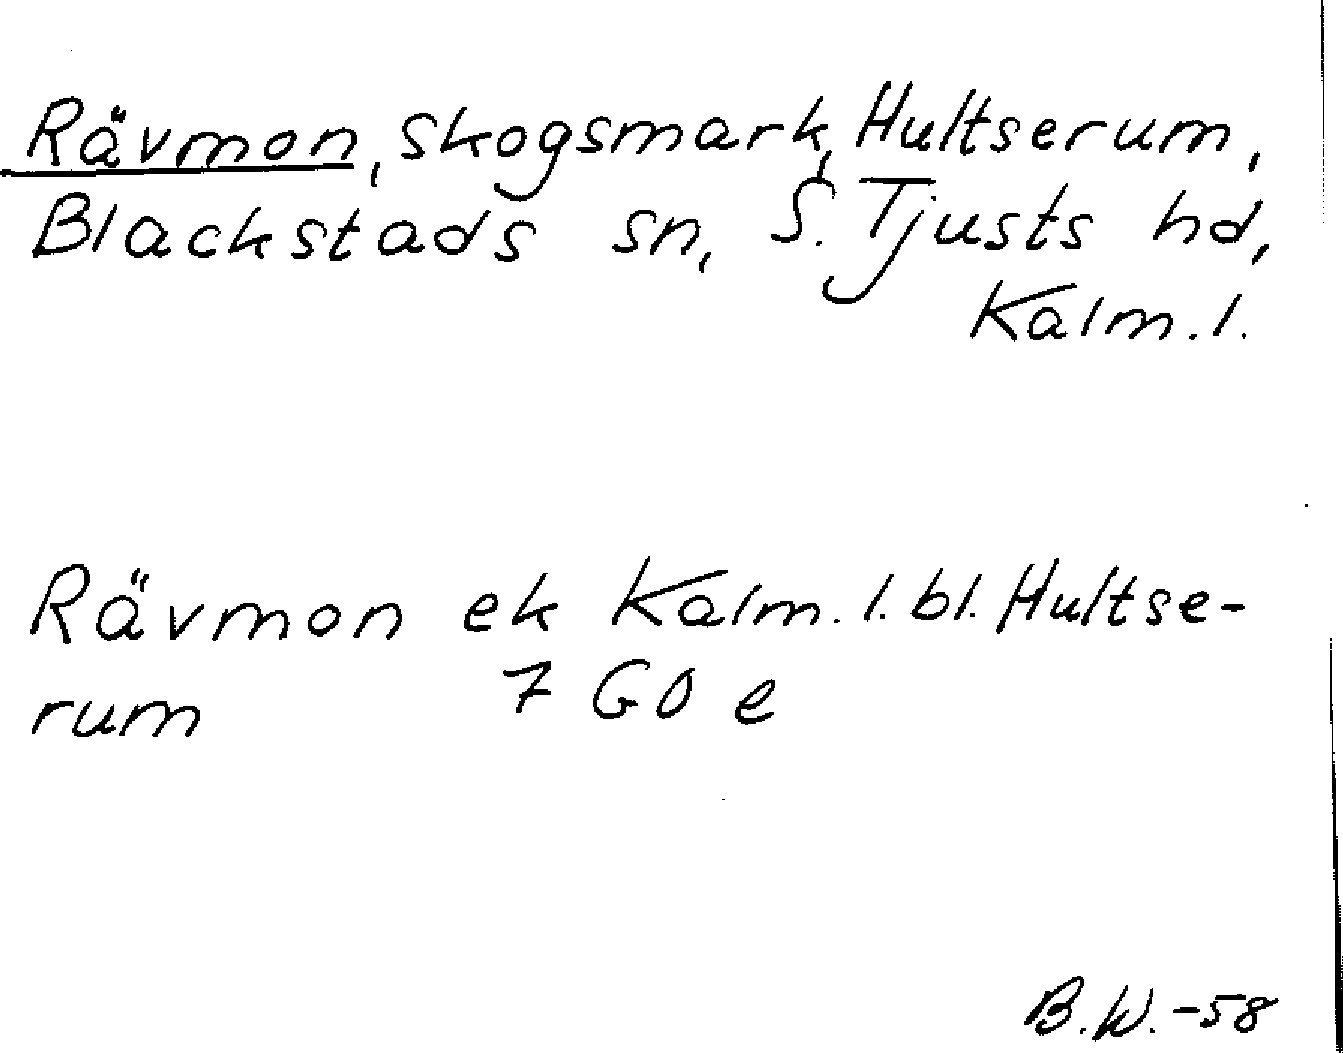 Rävmon, skogsmark, Hultserum,
Blackstads sn, S. Tjusts hd,
Kalm. l.
Rävmon ek Kalm. l. bl. Hultse-
rum 7 G O e
B.W. -58